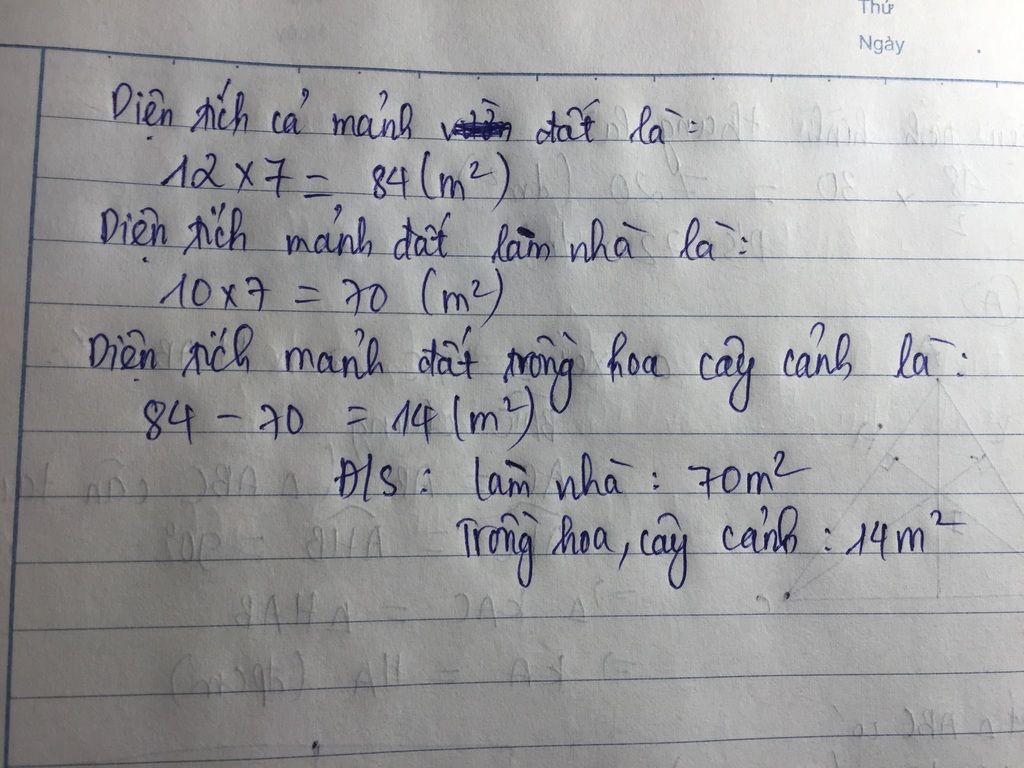 Thứ
Ngày
Diện tích cả mảnh đất là:
12 x 7 = 84 (m²)
Diện tích mảnh đất làm nhà là:
10 x 7 = 70 (m²)
Diện tích mảnh đất trồng hoa cây cảnh là:
84 - 70 = 14 (m²)
Đ/S: làm nhà: 70m²
Trồng hoa, cây cảnh: 14m²